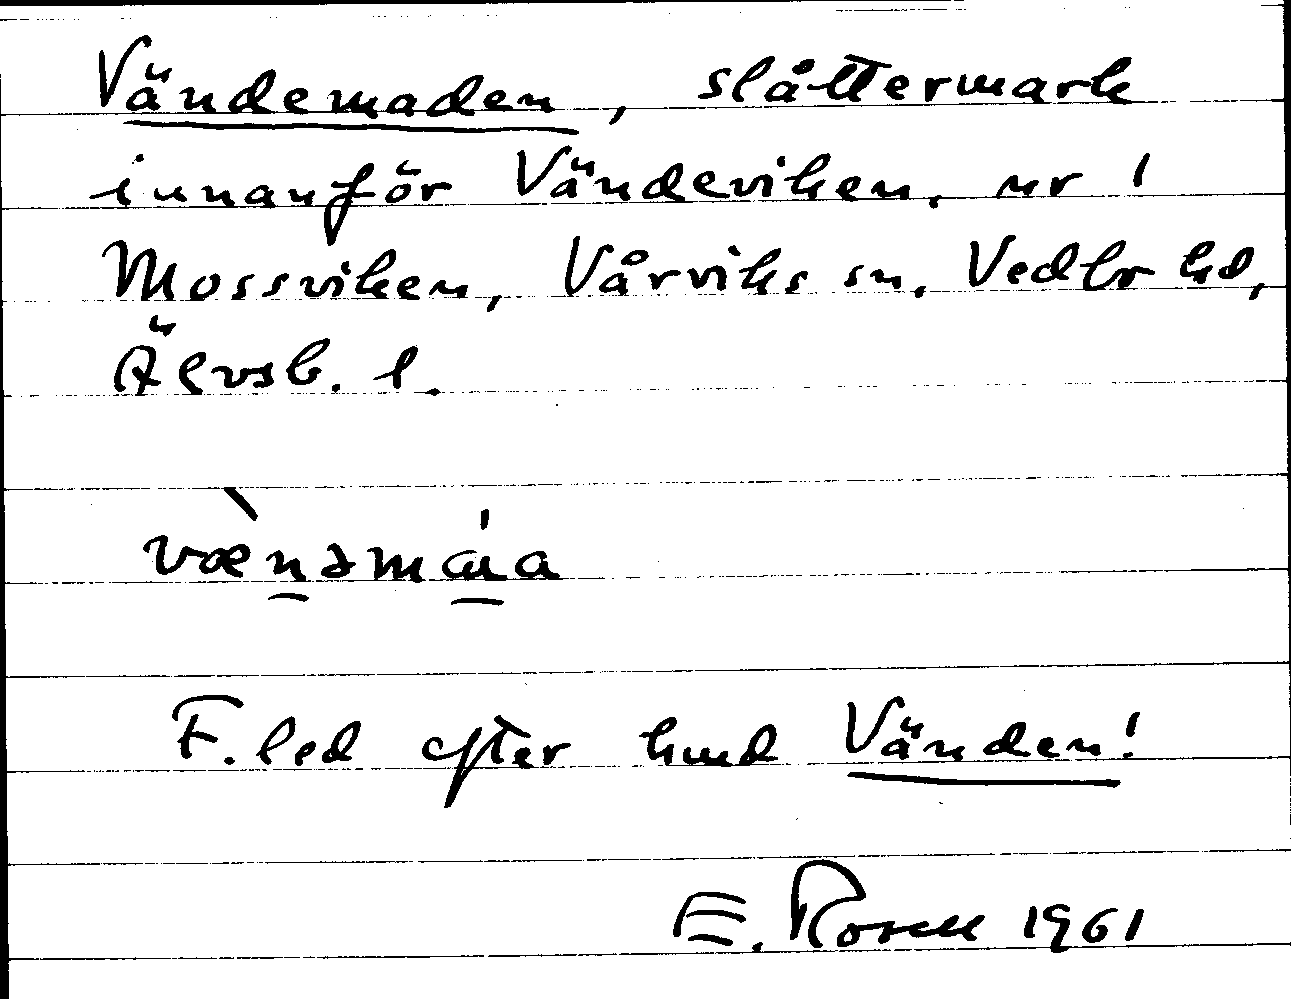 Vändemaden, slåttermark
innanför Vändeviken, nr 1
Mossviken, Vårviks sn, Vedbo hd,
Älvsb. l.
væ̀nəmáɑa
F. led efter hmd Vänden!
E. Rosell 1961